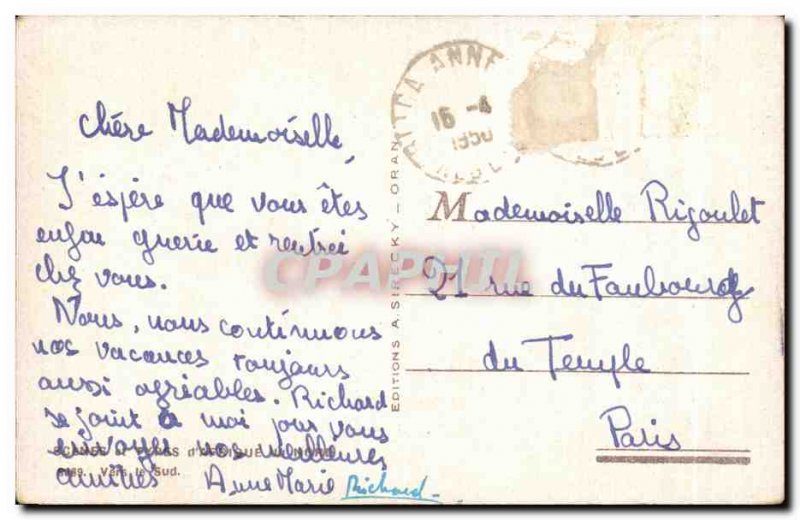 Chère Mademoiselle,
J'éspère que vous êtes
enfin guerie et rentrée
chez vous.
Nous, nous continuons
nos vacances toujours
aussi agréables. Richard
se joint à moi pour vous
envoyer nos meilleures
amitiés Anne Marie
Richard
SCÈNES ET TYPES d'AFRIQUE DU NORD
Vers le Sud.
EDITIONS A. SIRECKY - ORAN
ANNE
16 -4
1950
Mademoiselle Rigoulet
21 rue du Faubourg
du Temple
Paris
CPAPHIL